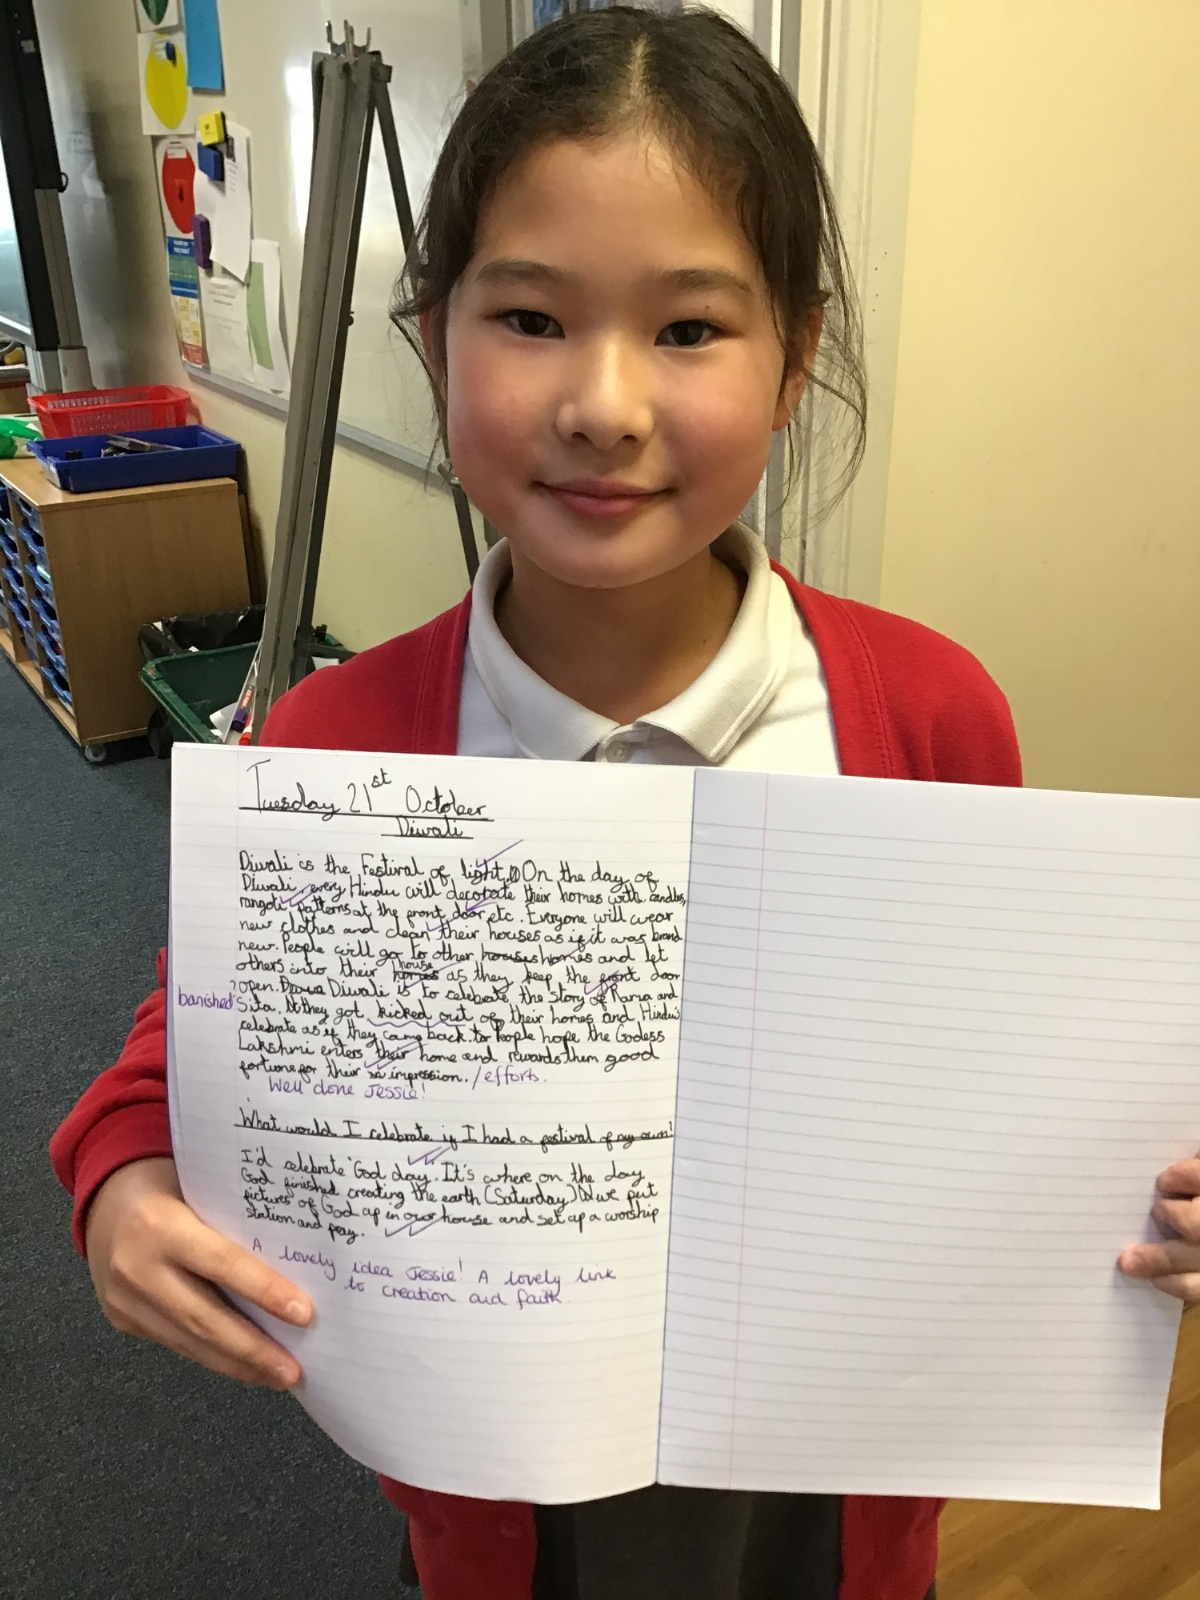 Tuesday 21st October
Diwali
Diwali is the Festival of light. On the day of
Diwali, every Hindu will decorate their homes with candles,
rangoli patterns at the front door, etc. Everyone will wear
new clothes and clean their houses as if it was brand
new. People will go to other houses homes and let
others into their homes house as they keep the front door
open. Diwali is to celebrate the story of Rama and
banished Sita. they got kicked out of their homes and Hindu's
celebrate as if they came back. to People hope the Godess
Lakshmi enters their home and rewards them good
fortune for their impression. /efforts.
Well done Jessie!
What would I celebrate if I had a festival of my own?
I'd celebrate 'God day. It's where on the day
God finished creating the earth (Saturday) we put
pictures of God up in our house and set up a worship
station and pray.
A lovely idea Jessie! A lovely link
to creation and faith.